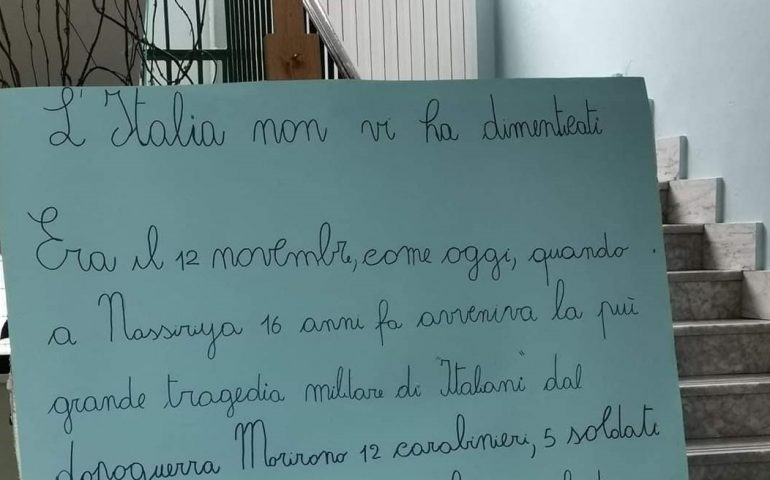 L'Italia non vi ha dimenticati
Era il 12 novembr, come oggi, quando
a Nassirya 16 anni fa avveniva la più
grande tragedia militare di "Italiani" dal
dopoguerra Morirono 12 carabinieri, 5 soldati